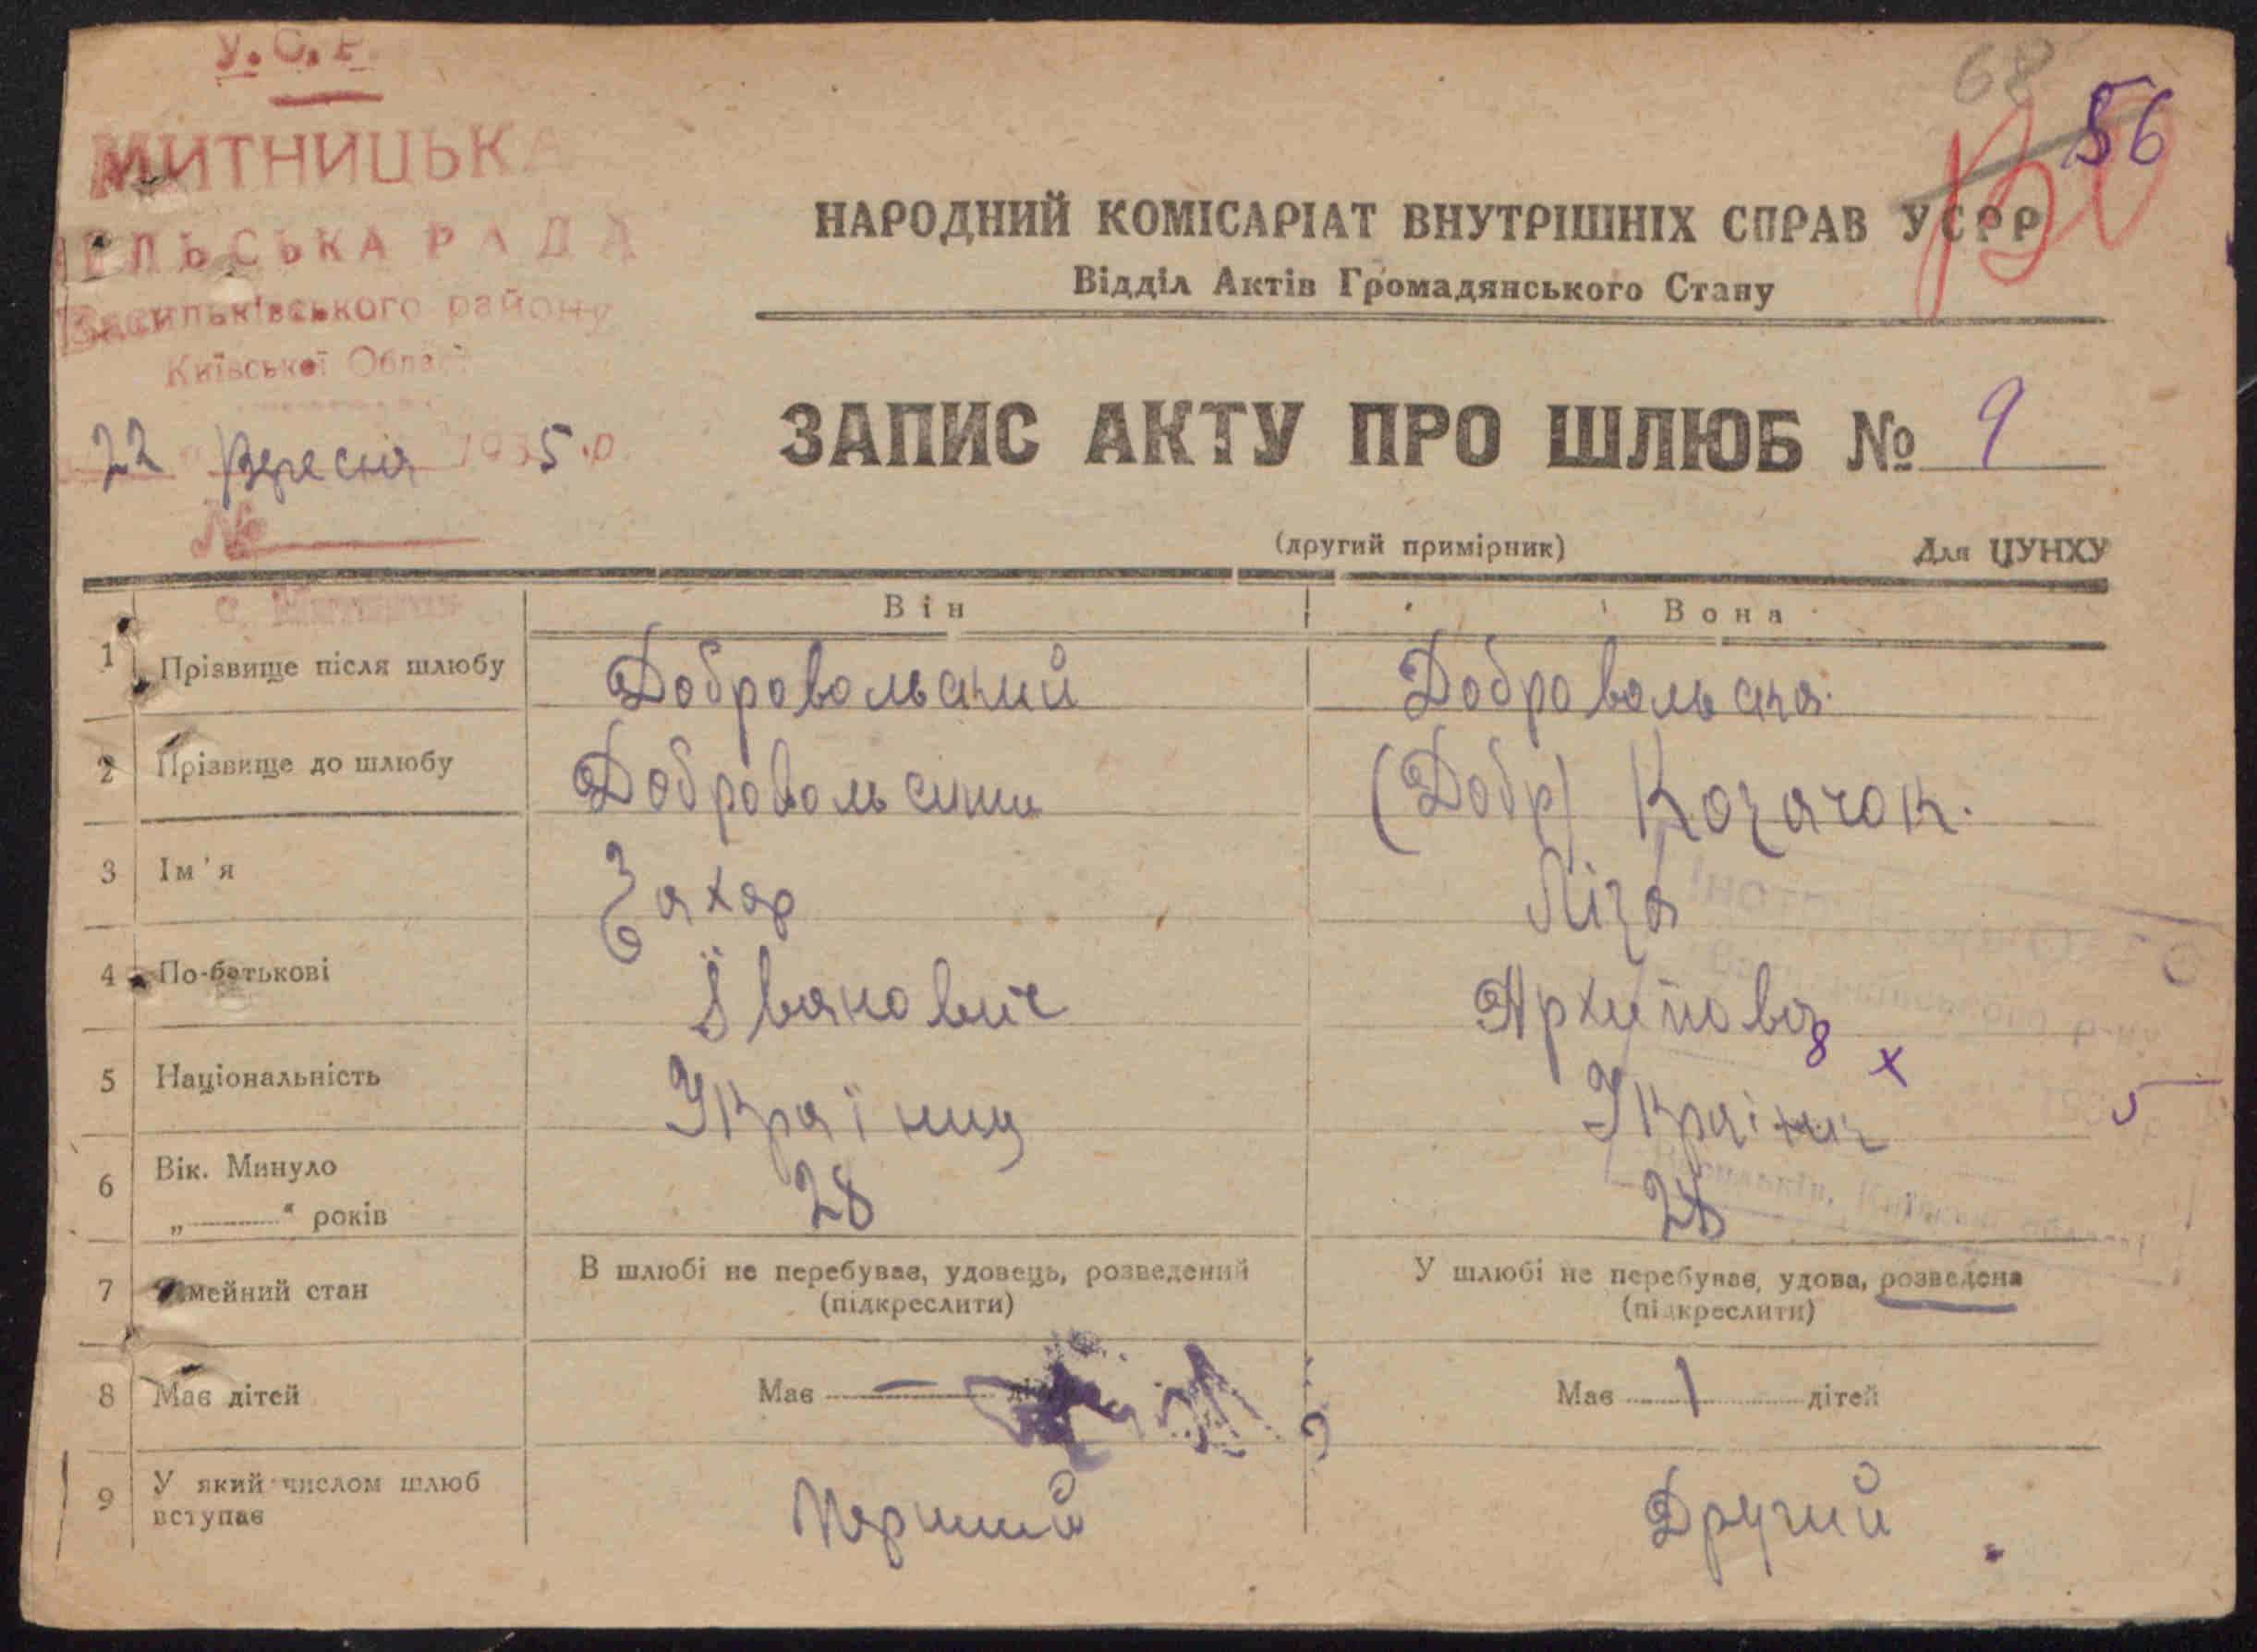 У.С.Р.
МИТНИЦЬКА
СІЛЬСЬКА РАДА
Васильківського району
Київської Області
22 Вересня 1935 р.
№
68
56
НАРОДНИЙ КОМІСАРІАТ ВНУТРІШНІХ СПРАВ УСРР
Відділ Актів Громадянського Стану
ЗАПИС АКТУ ПРО ШЛЮБ № 9
(другий примірник) Для ЦУНХУ
Він Вона
1 Прізвище після шлюбу Добровольский Добровольская.
2 Прізвище до шлюбу Добровольский (Добр) Козачок.
3 Ім'я Захар Ліза
4 По-батькові Їванович Архипова
5 Національність Українц Українк
6 Вік. Минуло
„ “ років 28 28
7 Сімейний стан В шлюбі не перебував, удовець, розведений У шлюбі не перебував, удова, розведена
(підкреслити) (підкреслити)
8 Має дітей Має — Має 1 дітей
9 У який числом шлюб
вступає Перший Другий